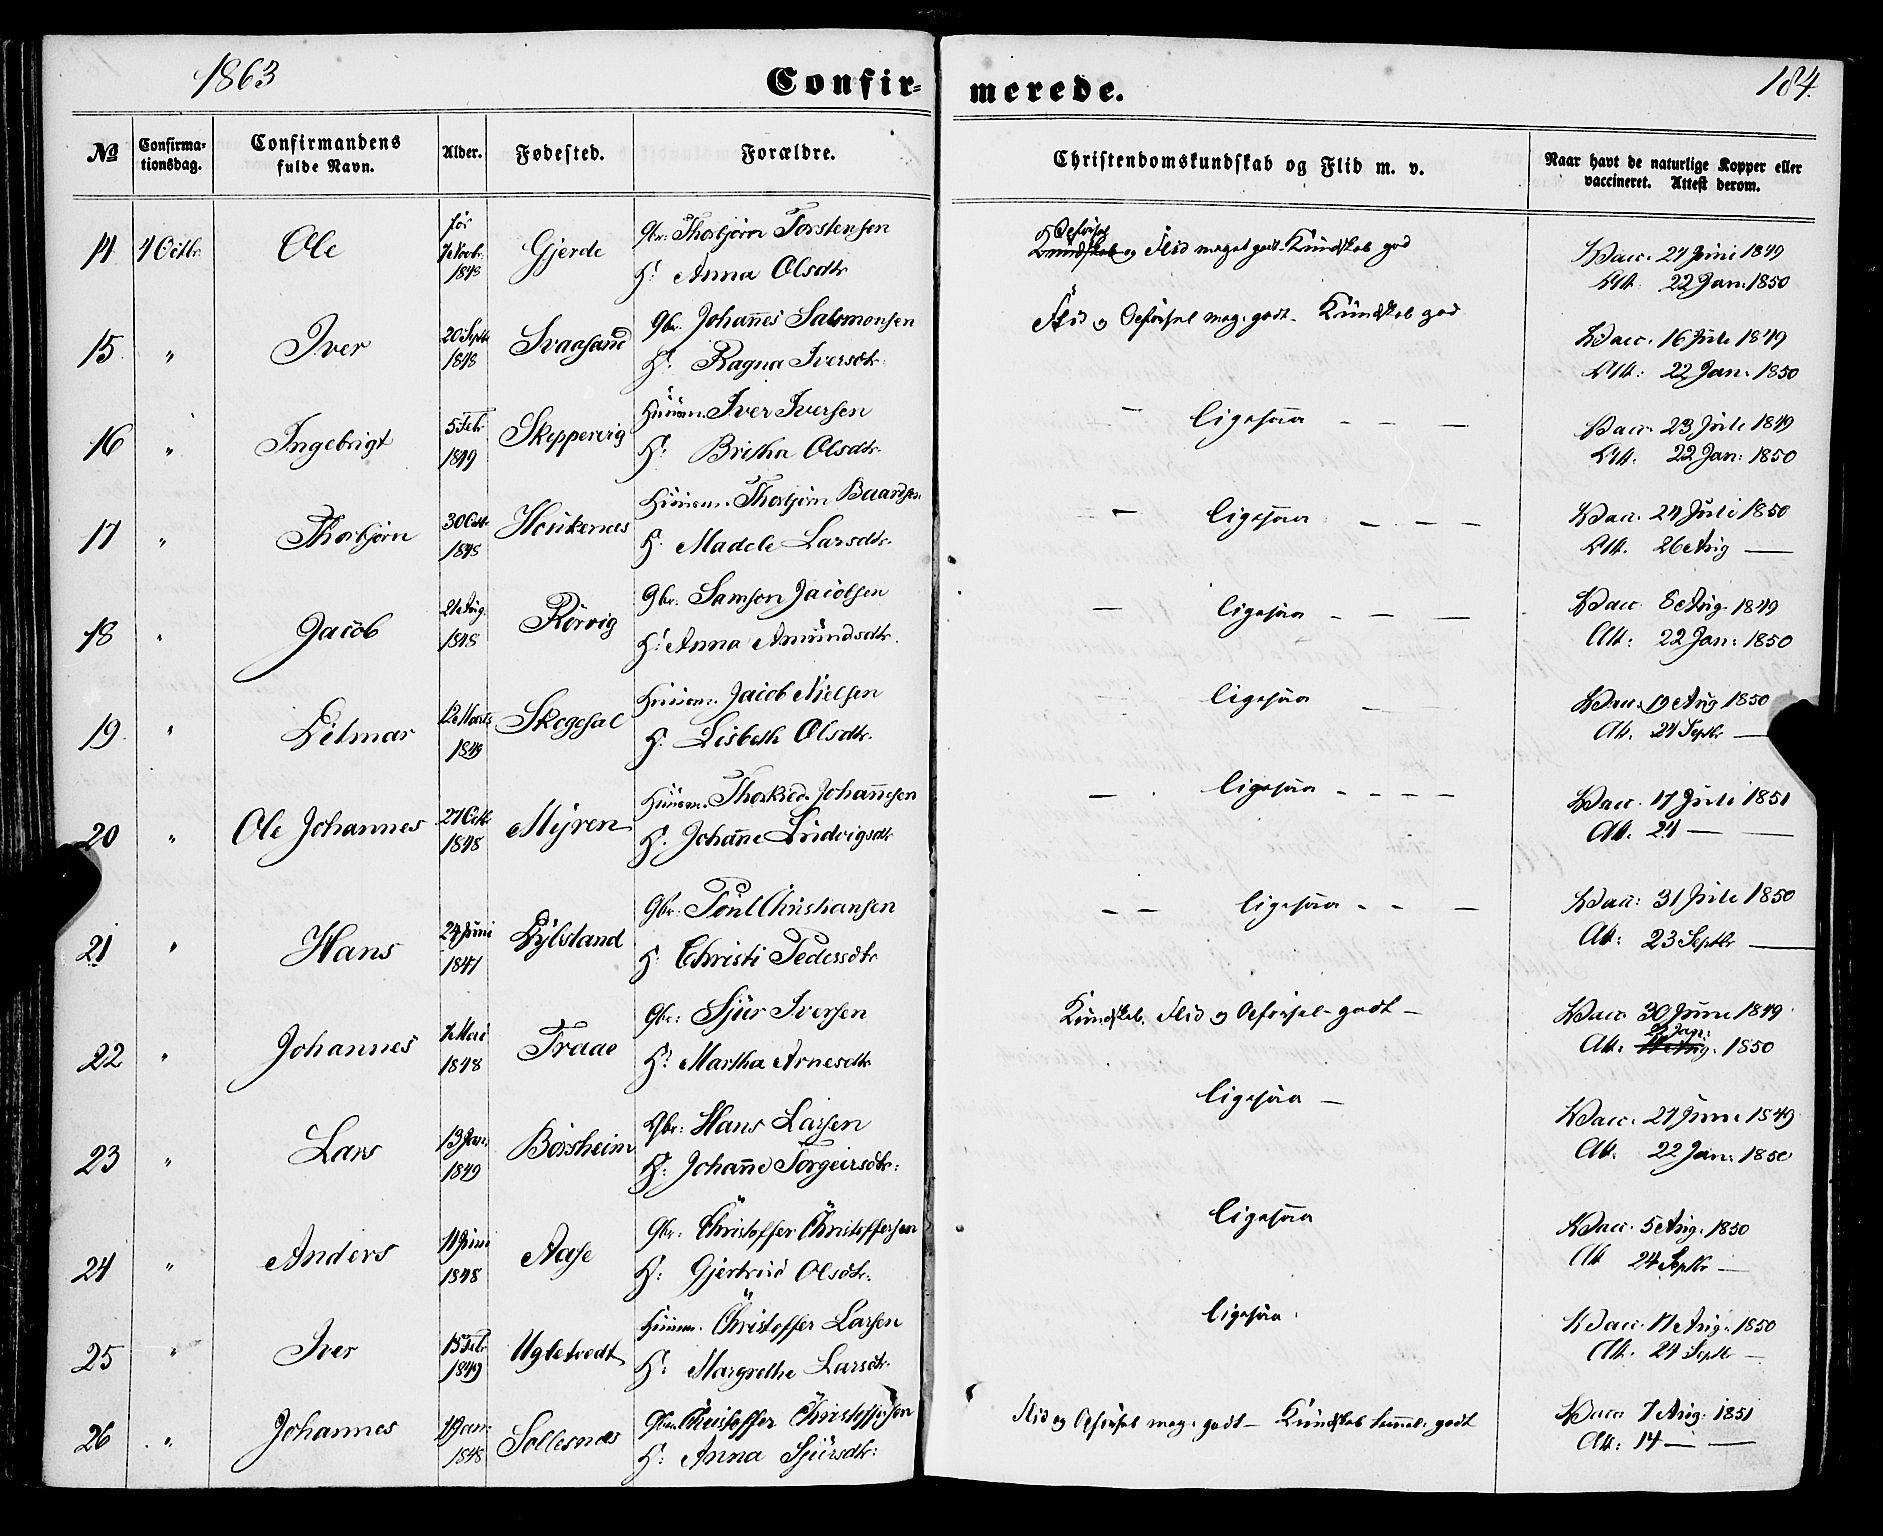 1863 Confir- merede. 184.
№ Confirma-tionsdag. Confirmandens fulde Navn. Alder. Fødested. Forældre. Christendomskundskab og Flid m. v. Naar havt de naturlige Kopper eller vaccineret. Attest derom.
14 4 Octbr Ole 1848 Gjerde Gbr: Thorbjørn Torstensen Opførsel og Flid meget godt. Kundskab god Vacc. 27 Juni 1849
H: Anna Olsdtr. Att. 22 Jan: 1850
15. " Iver 20 Septr 1848 Svaasand Gbr. Johannes Salomonsen Flid og Opførsel meg. godt. Kundskab god Vacc. 16 Juli 1849
H: Ragna Iversdtr. Att: 22 Jan. 1850
16 " Ingebrigt 5 Febr 1849 Skeppervig Huusm. Iver Iversen — ligesaa — — — Vacc. 23 Juli 1849
H: Britha Olsdtr. Att. 22 Jan: 1850
17 " Thorbjørn 30 Octr 1848 Houkenæs Huusm. Thorbjørn Baardsen — ligesaa — — — Vacc. 24 Juli 1850
H. Madele Larsdtr. Att. 26 Aug —
18 " Jacob 21 Aug. 1848 Rørvig Gbr: Samson Jacobsen — ligesaa — — — Vacc. 8 Aug. 1849
H: Anna Amundsdtr. Att: 22 Jan: 1850
19. " Ditmar 12 Marts 1849 Skogsal Huusm. Jacob Nielsen ligesaa — Vacc. 19 Aug 1850
H. Lisbeth Olsdtr. Att. 24 Septbr —
20 " Ole Johannes 27 Octr 1848 Myren Huusm. Johannesen — ligesaa — — — — Vacc. 17 Juli 1851
H. Johanne Ludvigsdtr Att. 24 — —
21 " Hans 24 Juni 1847 Gbr: Poul Christiansen — — ligesaa — — — Vacc: 31 Juli 1850
H: Christi Pedersdtr Att: 23 Septbr —
22 " Johannes 7 Mai 1848 Traae Gbr: Sjur Iversen Kundskab, Flid og Opførsel godt — Vacc. 30 Juni 1849
22 Jan:
H: Martha Arnesdtr Att. 1850
23 " Lars 13 Jan. 1849 Børsheim Gbr: Hans Larsen ligesaa — Vacc. 27 Juni 1849
H: Johanne Torgeirsdtr: Att. 22 Jan: 1850
24 " Anders 11 Juni 1848 Aase Gbr: Christoffer Christoffersen ligesaa Vacc. 5 Aug. 1850
H: Gjertrud Olsdtr. Att 24 Septbr —
25 " Iver 15 Febr 1849 Ugletvedt Huusm. Christoffer Larsen ligesaa. Vacc. 17 Aug. 1850
H: Margrethe Larsdtr. Att. 24 Septbr —
26 " Johannes 1848 Sollesnæs Gbr. Christoffer Christoffersen Flid og Opførsel meg. godt — Kundskab temmel. godt Vacc 7 Aug: 1851
H: Anna Sjursdtr: Att: 14 — —